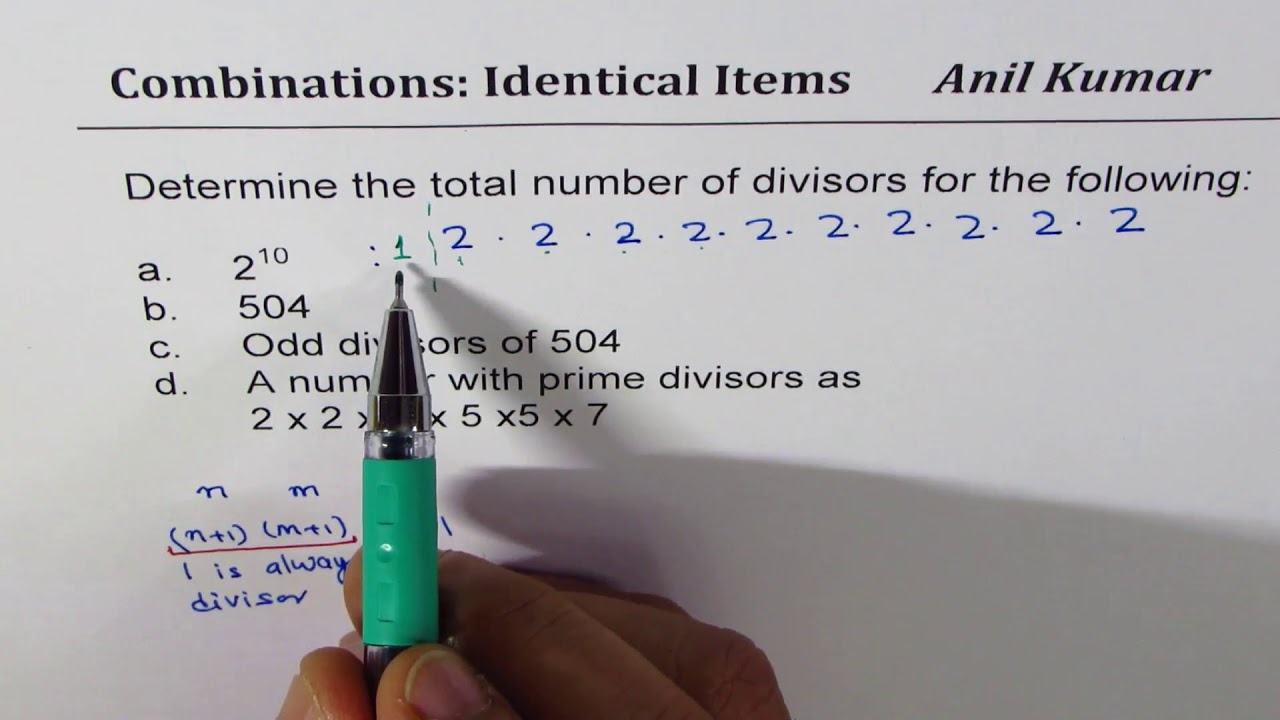 Combinations: Identical Items Anil Kumar
Determine the total number of divisors for the following:
: 1 2 · 2 · 2 · 2 · 2 · 2 · 2 · 2 · 2 · 2
a. 2¹⁰
b. 504
c. Odd of 504
d. A with prime divisors as
2 x 2 x 5 x5 x 7
n m
(n+1) (m+1) 1
1 is
divisor